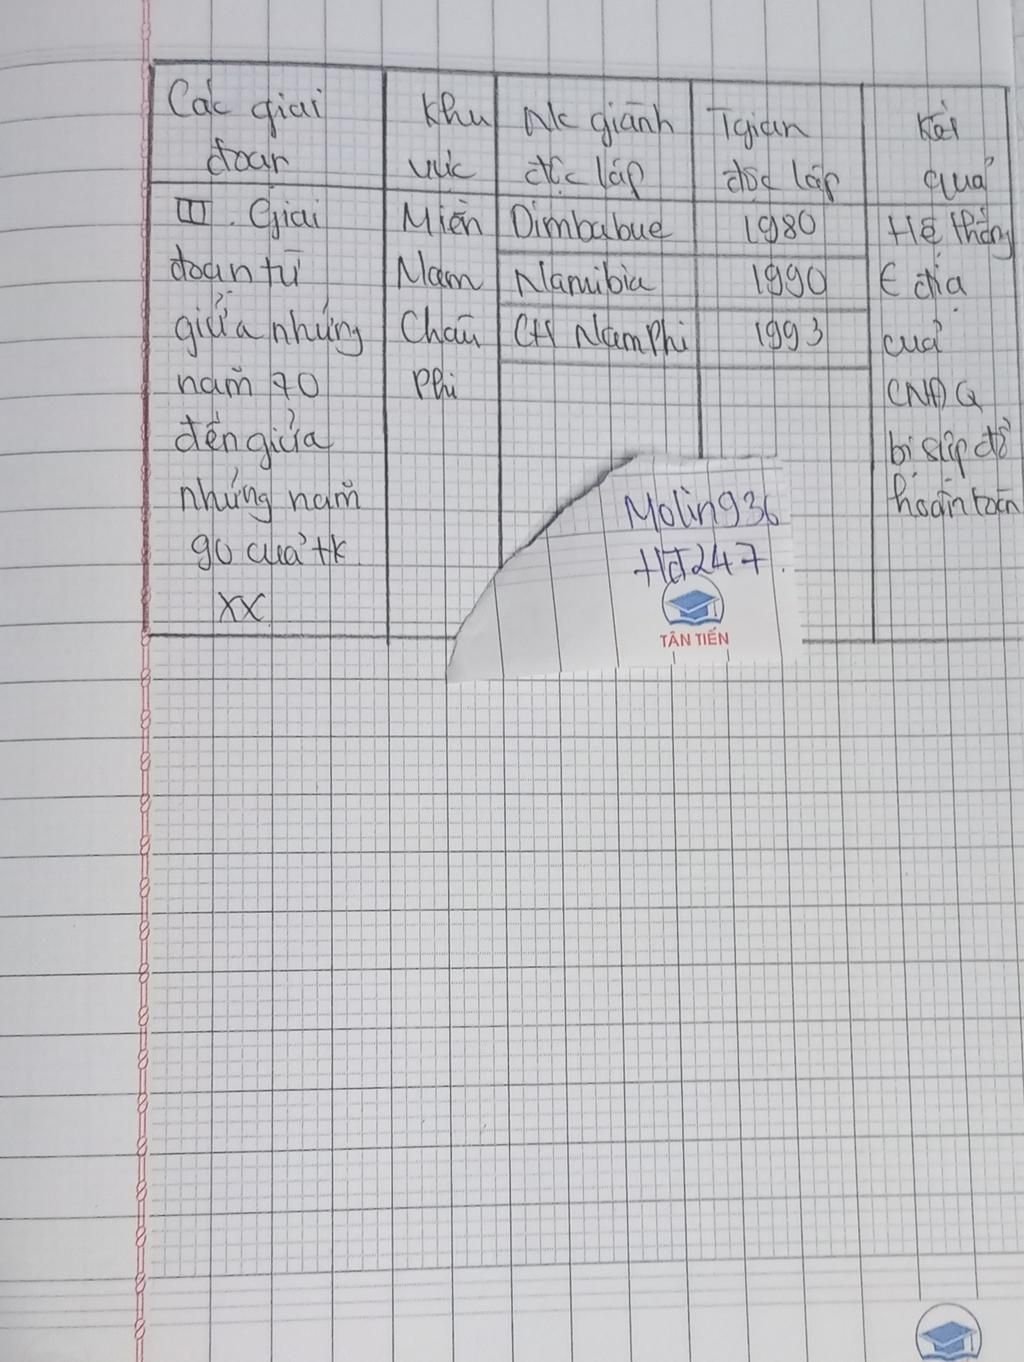 Các giai đoạn
Khu vực
Nc giành độc lập
Tgian độc lập
Kết quả
III. Giai đoạn từ giữa những năm 70 đến giữa những năm 90 của tk XX
Miền Nam Châu Phi
Dimbabue
1980
Namibia
1990
CH Nam Phi
1993
Hệ thống t địa của CNĐQ bị sụp đổ hoàn toàn
Molin936
HĐ247.
TÂN TIẾN